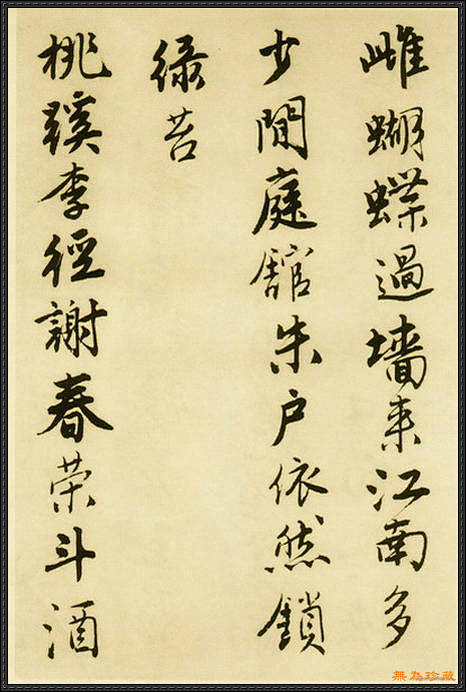 雌蝴蝶過墻来江南多
少閒庭舘朱戶依然鎖
緑苔
桃蹊李徑謝春荣斗酒
無為珍藏